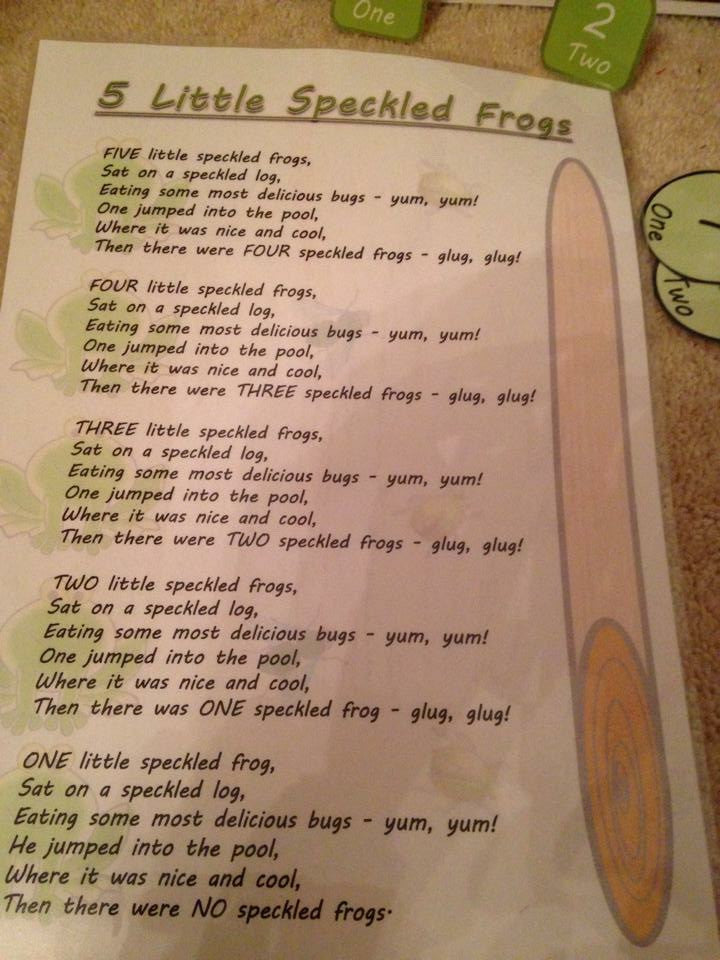 One
2
Two
5 Little Speckled Frogs
FIVE little speckled frogs,
Sat on a speckled log,
Eating some most delicious bugs - yum, yum!
One jumped into the pool,
Where it was nice and cool,
Then there were FOUR speckled frogs - glug, glug!
FOUR little speckled frogs,
Sat on a speckled log,
Eating some most delicious bugs - yum, yum!
One jumped into the pool,
Where it was nice and cool,
Then there were THREE speckled frogs - glug, glug!
THREE little speckled frogs,
Sat on a speckled log,
Eating some most delicious bugs - yum, yum!
One jumped into the pool,
Where it was nice and cool,
Then there were TWO speckled frogs - glug, glug!
TWO little speckled frogs,
Sat on a speckled log,
Eating some most delicious bugs - yum, yum!
One jumped into the pool,
Where it was nice and cool,
Then there was ONE speckled frog - glug, glug!
ONE little speckled frog,
Sat on a speckled log,
Eating some most delicious bugs - yum, yum!
He jumped into the pool,
Where it was nice and cool,
Then there were NO speckled frogs.
One
Two